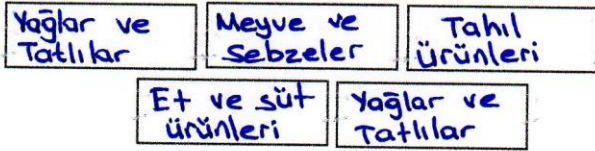 Yağlar ve
Tatlılar
Meyve ve
Sebzeler
Tahıl
ürünleri
Et ve süt
ürünleri
Yağlar ve
Tatlılar